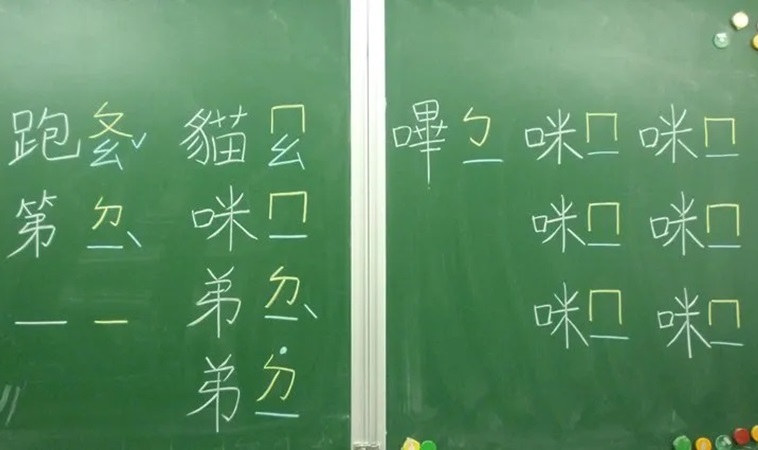 咪ㄇㄧ咪ㄇㄧ咪ㄇㄧ
咪ㄇㄧ咪ㄇㄧ咪ㄇㄧ
嗶ㄅㄧ
貓ㄇㄠ咪ㄇㄧ弟ㄉㄧˋ弟˙ㄉㄧ
跑ㄆㄠˇ第ㄉㄧˋ一ㄧ